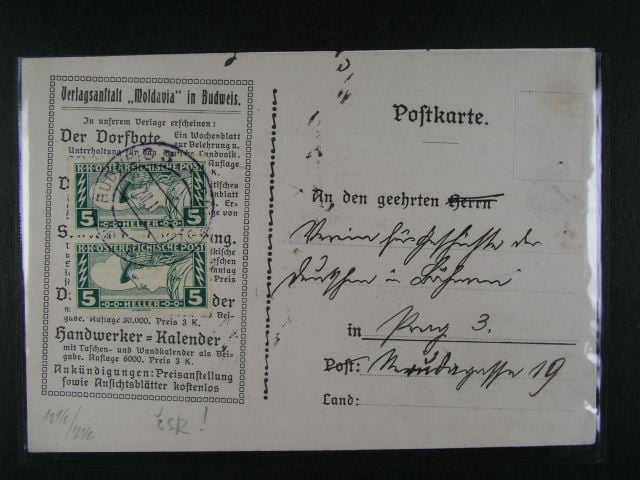 Verlagsanstalt „Moldavia" in Budweis.
In unserem Verlage erscheinen:
Der Dorfbote. Ein Wochenblatt
zur Belehrung u.
Unterhaltung für das Landvolk.
Auflage
K.K. ÖSTERREICHISCHE POST
5 HELLER 5
K.K. ÖSTERREICHISCHE POST
5 HELLER 5
gabe. Auflage 30.000. Preis 3 K.
Handwerker=Kalender,
mit Taschen- und Wandkalender als Bei-
gabe. Auflage 6000. Preis 3 K.
Ankündigungen: Preisanstellung
sowie Ansichtsblätter kostenlos
Postkarte.
An den geehrten Herrn
Verein für Geschichte der
Deutschen in Böhmen
in Prag 3.
Post: Nerudagasse 19
Land:
čsR!